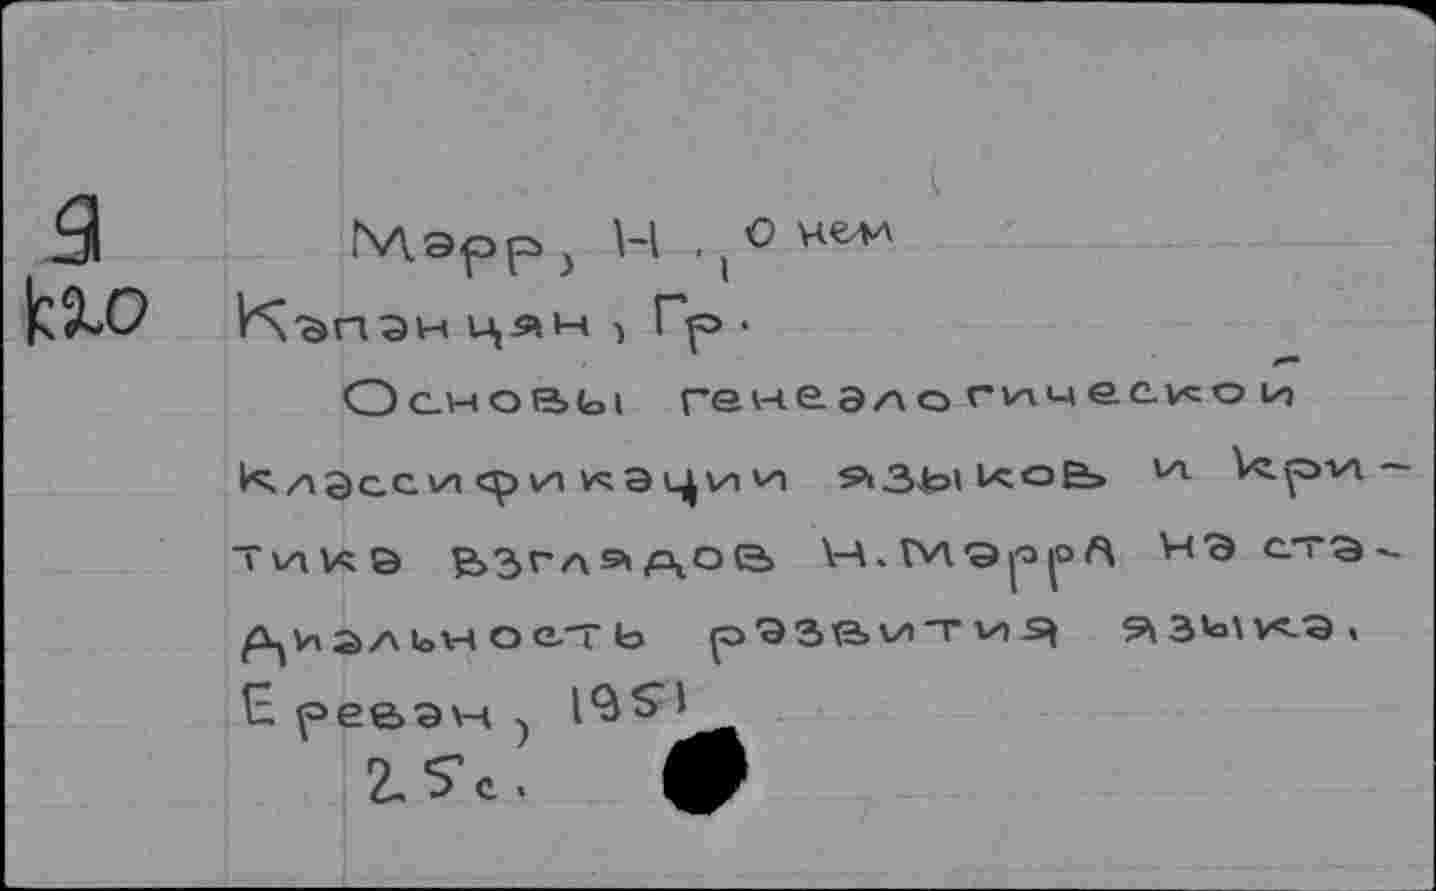 Я
К20
Марр, Н., о нем
Капанцян, Гр.
Основы генеалогической
классификации языков и кри-
тика взглядов Н. Марра на ста-
диальность развития языка.
Ереван, 1951
25 с.